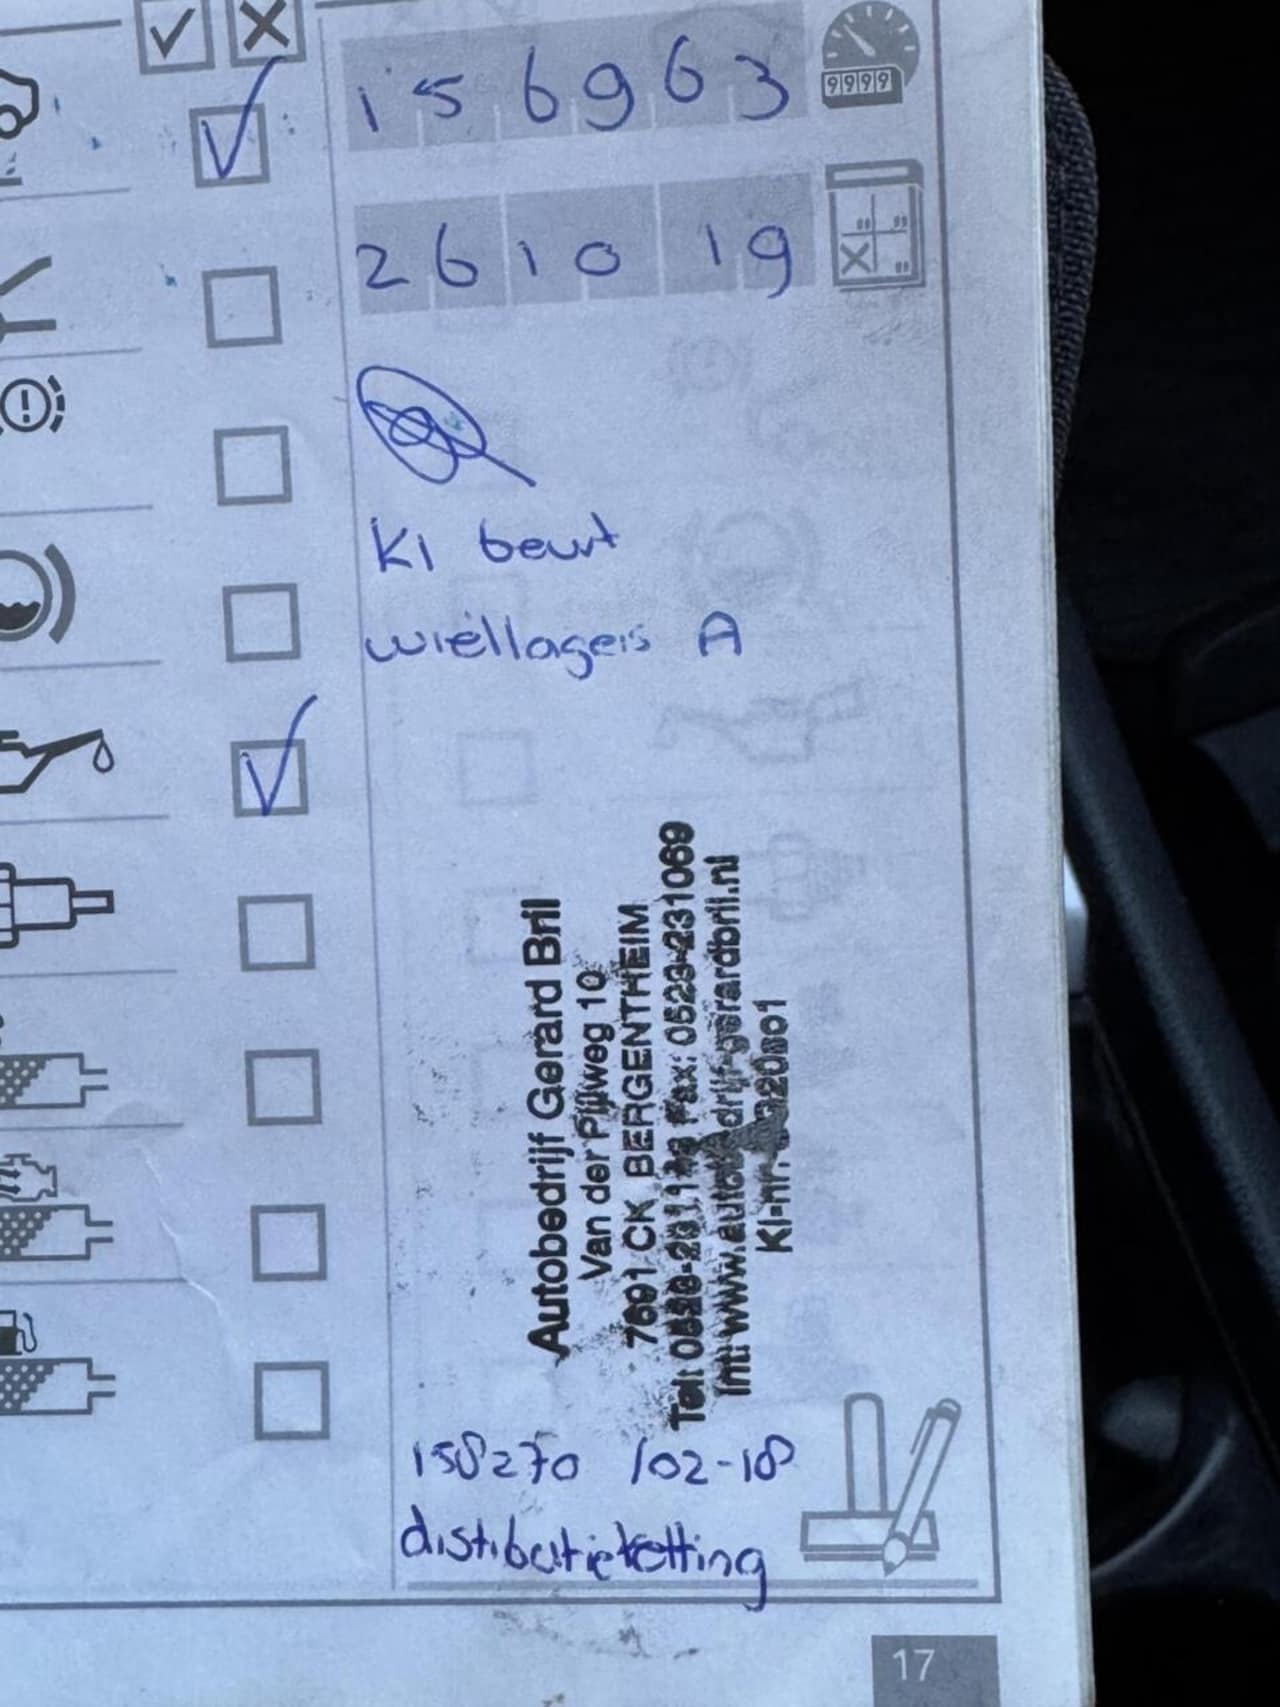 156963
9999
26 10 19
Kl beurt
wiellagers A
Autobedrijf Gerard Bril
Van der Pijlweg 10
7691 CK BERGENTHEIM
Fax: 0523-231069
Int: www.autobedrijf-gerardbril.nl
KI-nr.
158270 /02-18
distibutieketting
17